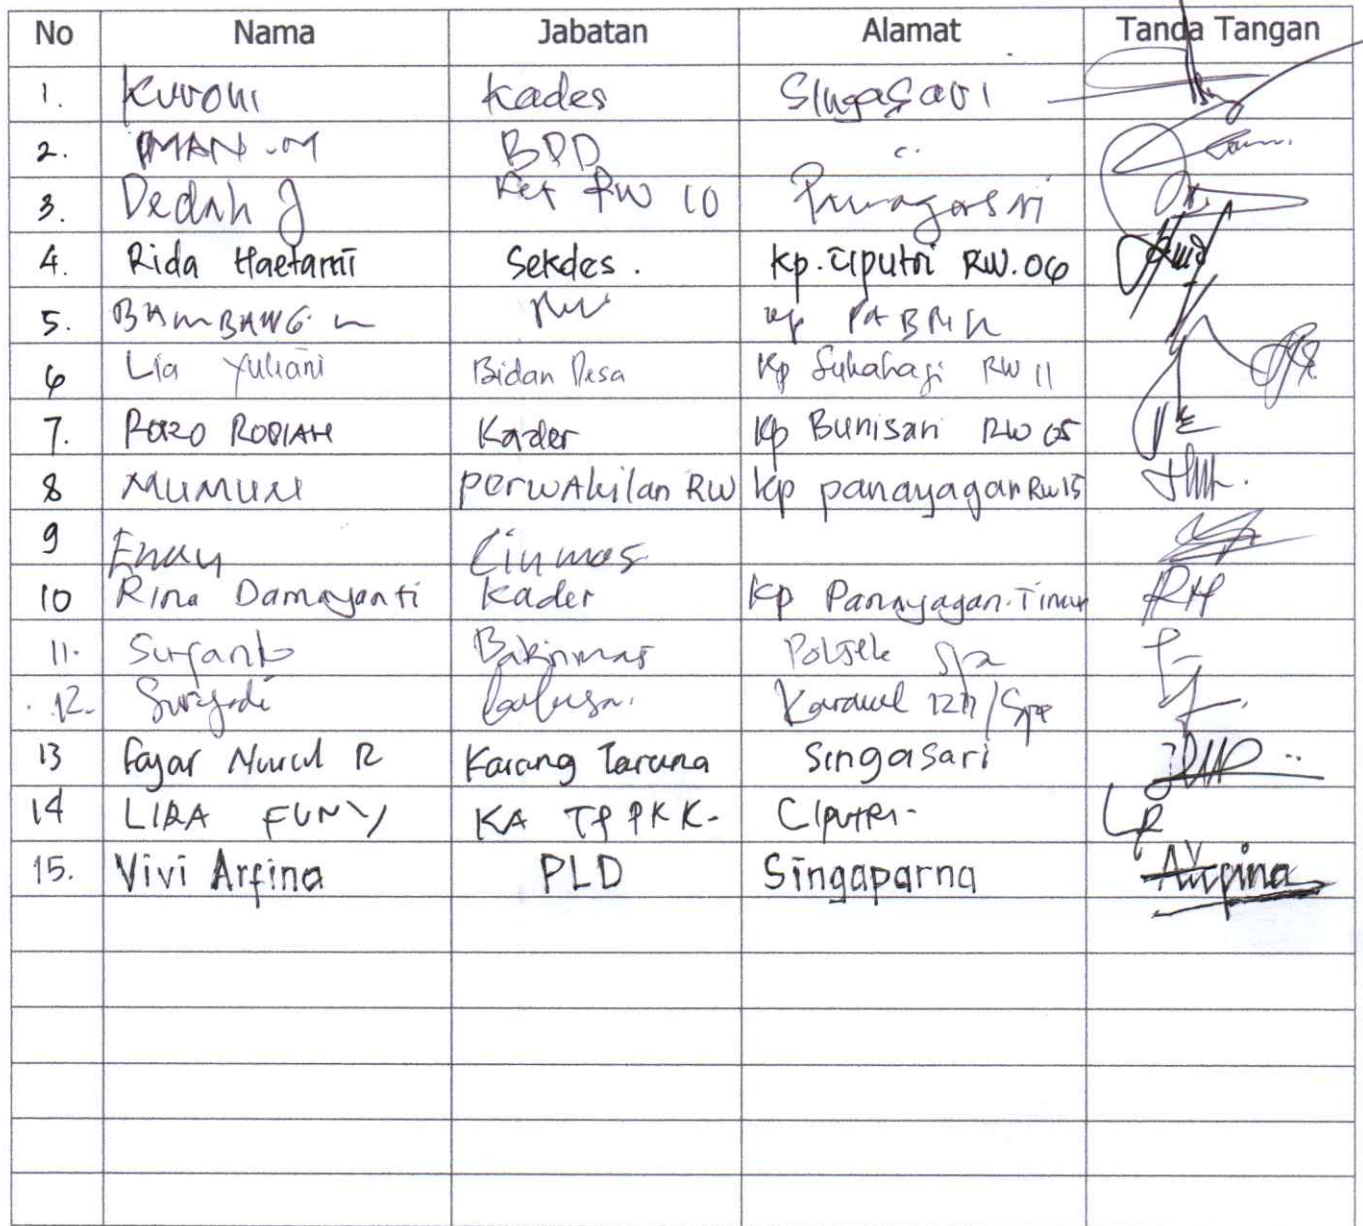 No Nama Jabatan Alamat Tanda Tangan
1. Kuroni Kades Singasari
2. IMAN .M BPD
3. Dedah J Ket RW 10
4. Rida Haetami Sekdes. Kp. Ciputri RW.06
5. BAMBANG RW Kp PABRIK
6 Lia Yuliani Bidan Desa Kp Sukahaji RW 11
7. ROBIAH Kader Kp Bunisari RW 05
8 MUMUN perwakilan RW Kp panayagan RW 15
9 Enay Linmas
10 Rina Damayanti Kader Kp Panayagan. Timur
11. Suryanto Polsek Spa
12. Suryadi
13 Fajar Nurul R Karang Taruna Singasari
14 LIRA FUNY KA TP PKK- CIPUTRI-
15. Vivi Arfina PLD Singaparna Arfina